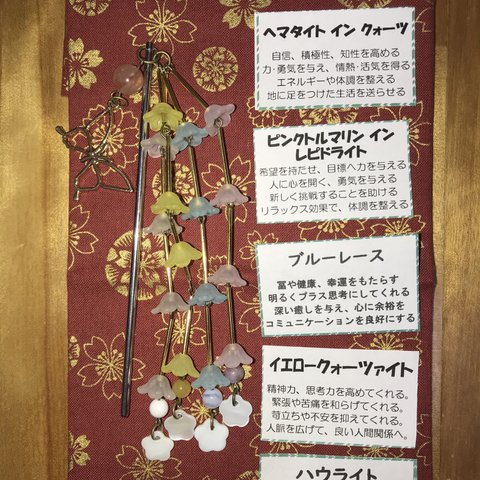 ヘマタイト イン クォーツ
自信、積極性、知性を高める
力・勇気を与え、情熱・活気を得る
エネルギーや体調を整える
地に足をつけた生活を送らせる
ピンクトルマリン イン
レピドライト
希望を持たせ、目標へ力を与える
人に心を開く、勇気を与える
新しく挑戦することを助ける
リラックス効果で、体調を整える
ブルーレース
富や健康、幸運をもたらす
明るくプラス思考にしてくれる
深い癒しを与え、心に余裕を
コミュニケーションを良好にする
イエロークォーツァイト
精神力、思考力を高めてくれる。
緊張や苦痛を和らげてくれる。
苛立ちや不安を抑えてくれる。
人脈を広げて、良い人間関係へ。
ハウライト